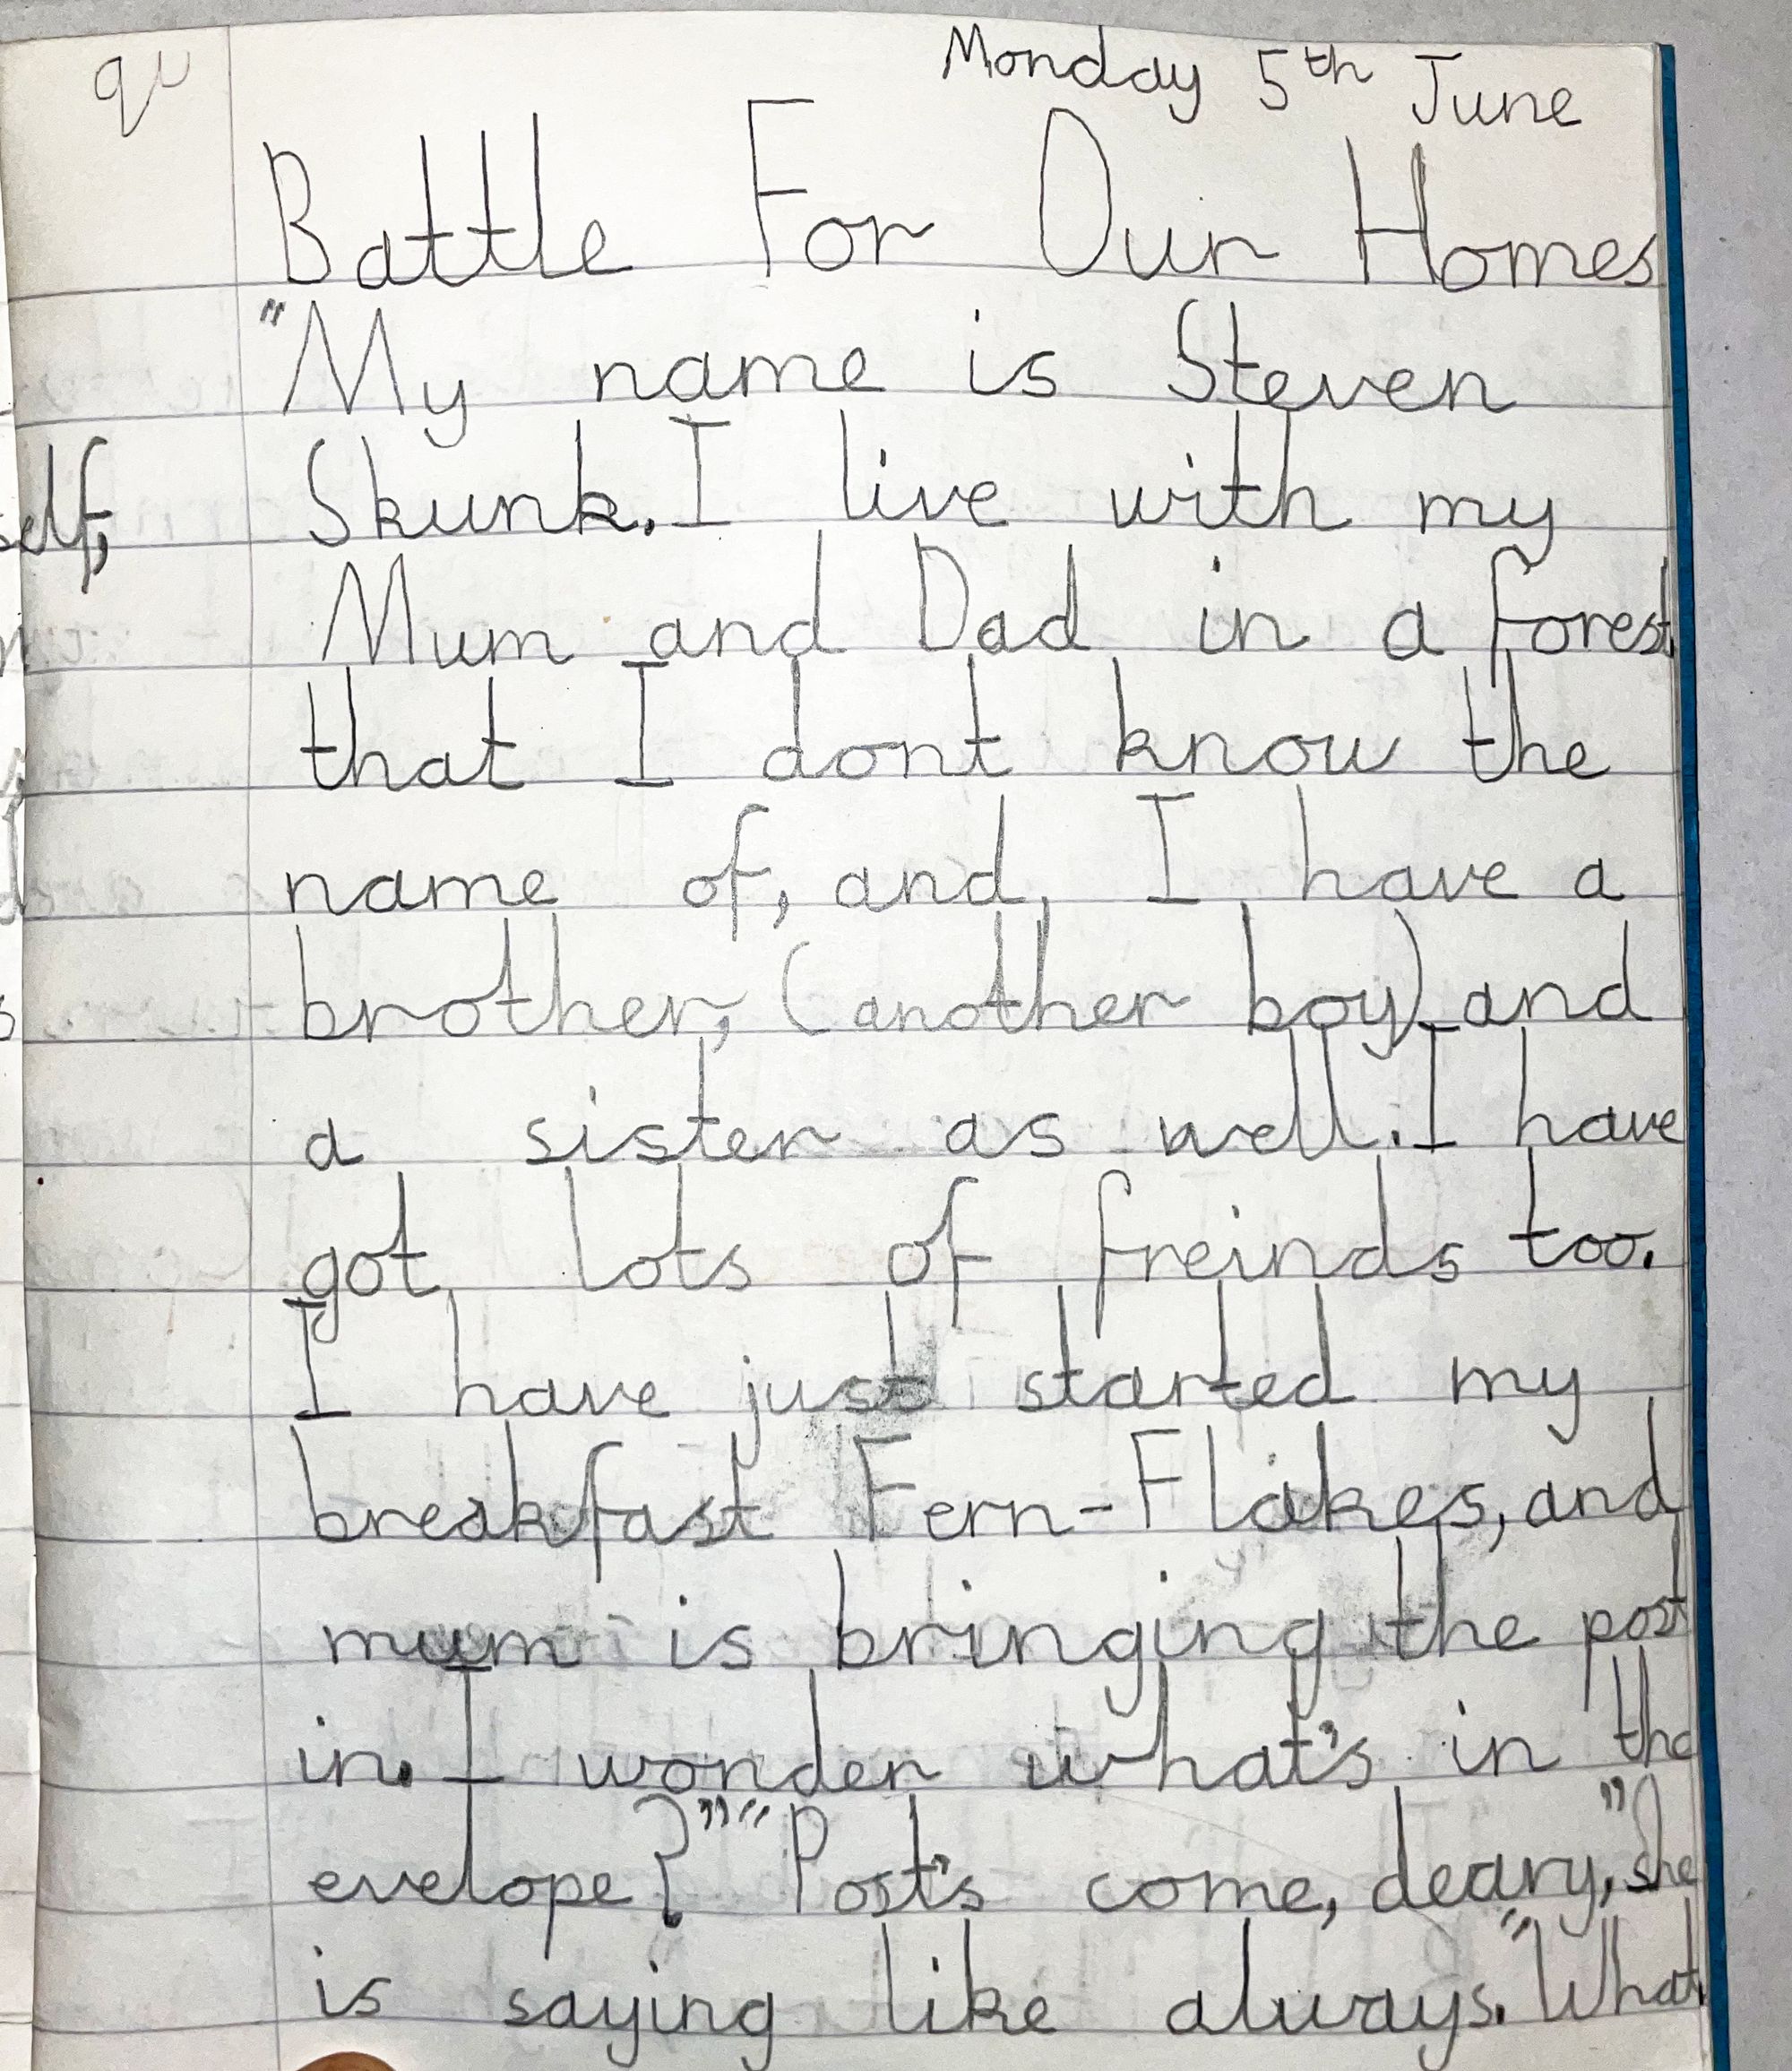 Monday 5th June
qu
Battle For Our Homes
"My name is Steven
Skunk. I live with my
self,
Mum and Dad in a forest
that I dont know the
name of, and I have a
brother, (another boy) and
a sister as well. I have
got lots of freinds too.
I have just started my
breakfast Fern-Flakes, and
mum is bringing the post
in. I wonder what's in the
evelope?" "Post's come, deary," she
is saying like always. "What